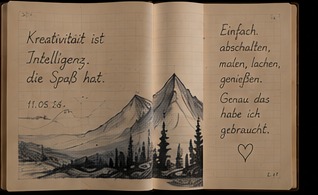 Kreativität ist
Intelligenz.
die Spaß hat.
11.05.26.
Einfach
abschalten,
malen, lachen,
genießen.
Genau das
habe ich
gebraucht.